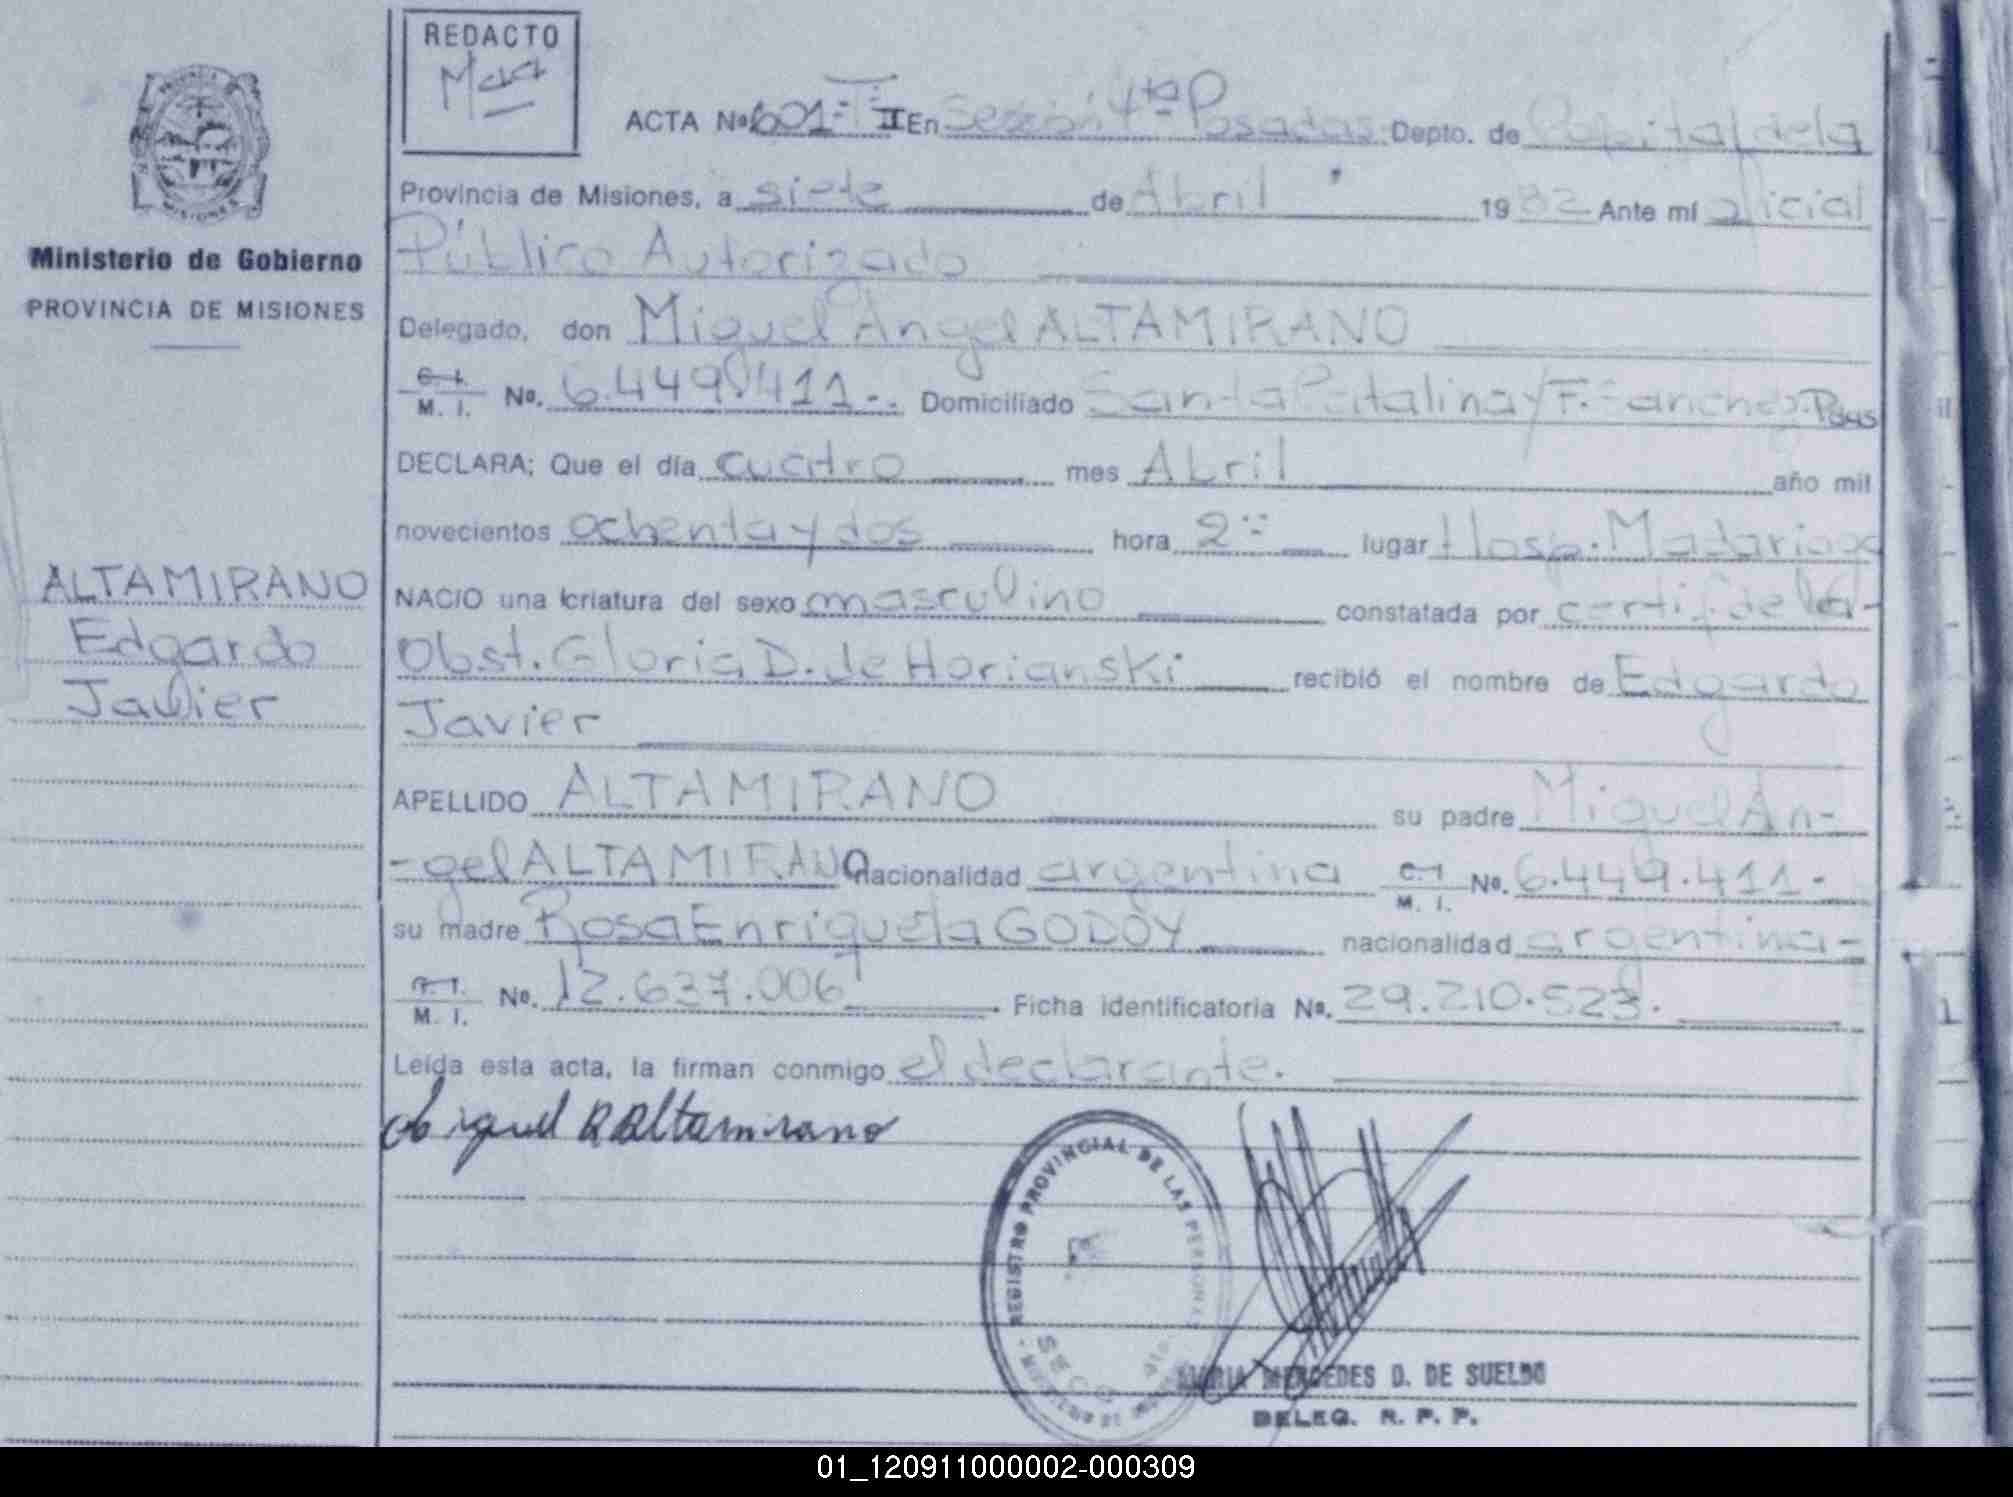 REDACTO
ACTA Nº 601-T-II En Sección 4ta Posadas Depto. de Capital de la
Provincia de Misiones, a siete de Abril 1982 Ante mí oficial
Público Autorizado
Delegado, don Miguel Angel ALTAMIRANO
C. I. M. I. No. 6.449.411-. Domiciliado Santa Catalina y F. Sanchez. Pdas
DECLARA; Que el día cuatro mes Abril año mil
novecientos ochenta y dos hora 2 lugar Hosp. Madariaga
NACIO una criatura del sexo masculino constatada por certif. de la-
Obst. Gloria D. de Horianski recibió el nombre de Edgardo
Javier
APELLIDO ALTAMIRANO su padre Miguel An-
-gel ALTAMIRANO nacionalidad argentina C. I. M. I. No. 6.449.411-
su madre Rosa Enriqueta GODOY nacionalidad argentina-
C. I. M. I. No. 12.637.006 Ficha identificatoria No. 29.210.523.
Leída esta acta, la firman conmigo el declarante.
Miguel A Altamirano
REGISTRO PROVINCIAL DE LAS PERSONAS
MARIA MERCEDES D. DE SUELDO
DELEG. R. P. P.
PROVINCIA DE MISIONES
Ministerio de Gobierno
PROVINCIA DE MISIONES
ALTAMIRANO
Edgardo
Javier
01_120911000002-000309